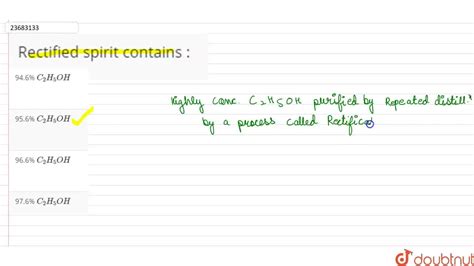 23683133
Rectified spirit contains :
94.6% C₂H₅OH
95.6% C₂H₅OH
96.6% C₂H₅OH
97.6% C₂H₅OH
Highly conc. C₂H₅OH purified by Repeated distillⁿ
by a process called Rectifica
doubtnut